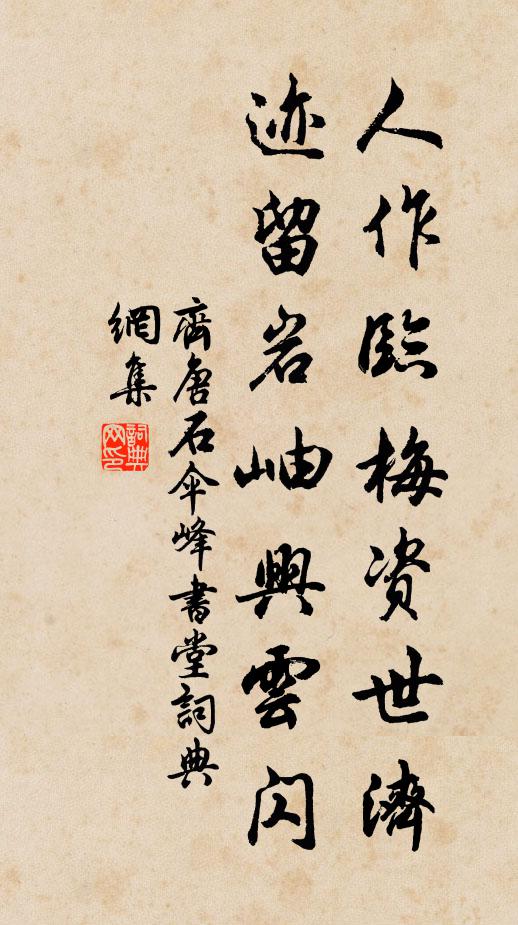 人作临梅资世濟
迹留岩岫興雲闪
齊唐石伞峰書堂詞典
網集
詞典
网印